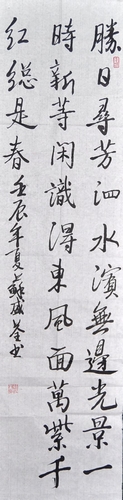 勝日尋芳泗水濱無邊光景一
時新等闲識得東風面萬紫千
红總是春壬辰年夏蘇成荃书